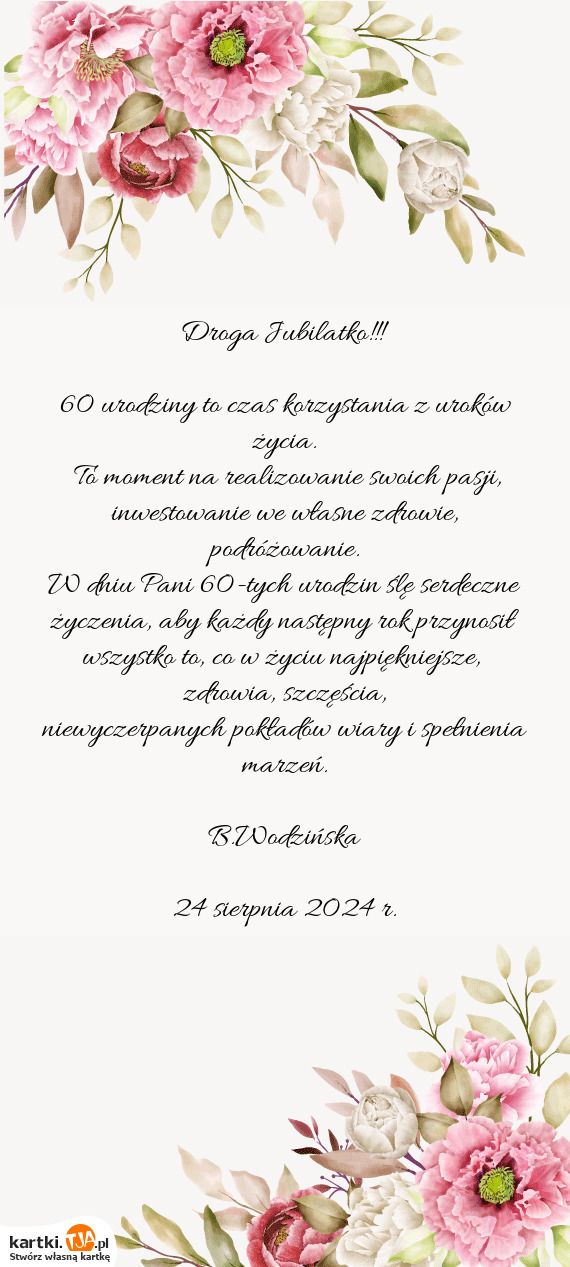 Droga Jubilatko!!!
60 urodziny to czas korzystania z uroków
życia.
To moment na realizowanie swoich pasji,
inwestowanie we własne zdrowie,
podróżowanie.
W dniu Pani 60-tych urodzin ślę serdeczne
życzenia, aby każdy następny rok przynosił
wszystko to, co w życiu najpiękniejsze,
zdrowia, szczęścia,
niewyczerpanych pokładów wiary i spełnienia
marzeń.
B.Wodzińska
24 sierpnia 2024 r.
kartki.TJA.pl
Stwórz własną kartkę